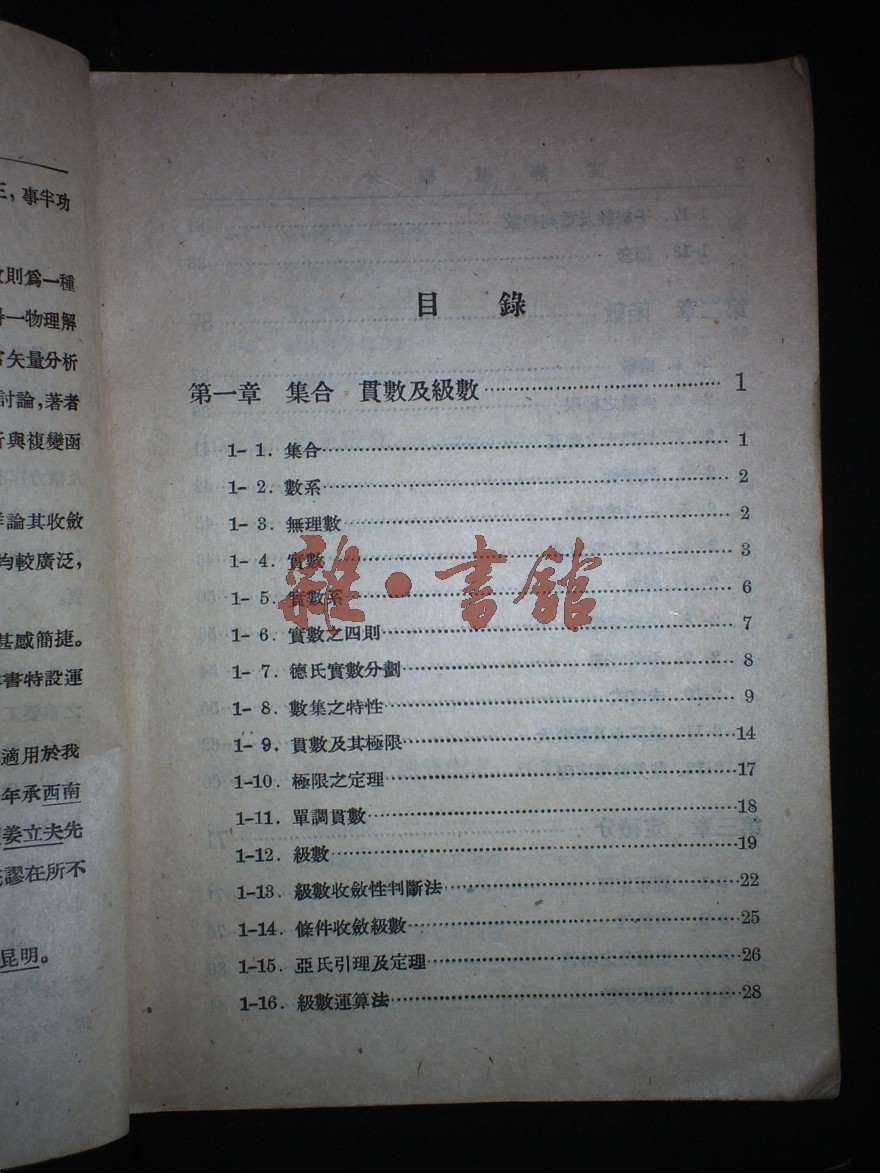 三，事半功
則爲一種
一物理解
矢量分析
討論，著者
與複變函
論其收斂
均較廣泛，
甚感簡捷。
書特設運
適用於我
年承西南
姜立夫先
謬在所不
昆明。
目 錄
第一章 集合 貫數及級數 1
1- 1. 集合 1
1- 2. 數系 2
1- 3. 無理數 2
1- 4. 實數 3
1- 5. 實數系 6
1- 6. 實數之四則 7
1- 7. 德氏實數分劃 8
1- 8. 數集之特性 9
1- 9. 貫數及其極限 14
1-10. 極限之定理 17
1-11. 單調貫數 18
1-12. 級數 19
1-13. 級數收斂性判斷法 22
1-14. 條件收斂級數 25
1-15. 亞氏引理及定理 26
1-16. 級數運算法 28
雜·書館